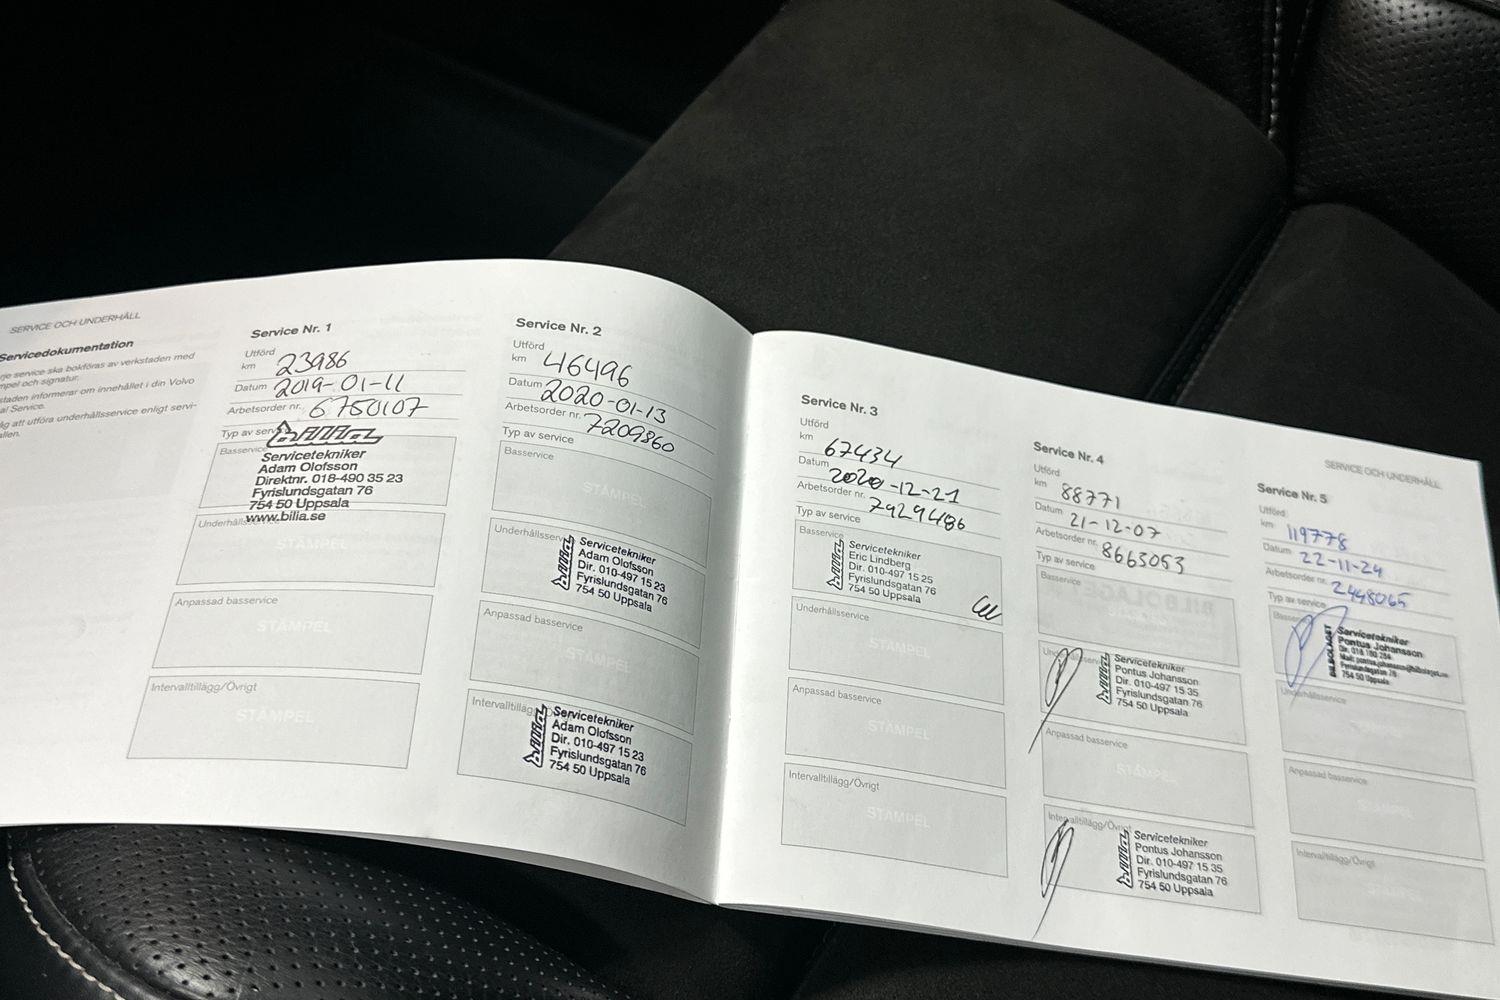 SERVICE OCH UNDERHÅLL
Servicedokumentation
service ska bokföras av verkstaden med
och signatur.
informerar om innehållet i din Volvo
Service.
att utföra underhållsservice enligt servi-
Service Nr. 1
Utförd
km 23986
Datum 2019-01-11
Arbetsorder nr. 6750107
Typ av
bilia
Basservice
Servicetekniker
Adam Olofsson
Direktnr. 018-490 35 23
Fyrislundsgatan 76
754 50 Uppsala
www.bilia.se
STÄMPEL
Anpassad basservice
STÄMPEL
Intervalltillägg/Övrigt
STÄMPEL
Service Nr. 2
Utförd
km 46496
Datum 2020-01-13
Arbetsorder nr. 7209860
Typ av service
Basservice
STÄMPEL
Underhållsserv
bilia
Servicetekniker
Adam Olofsson
Dir. 010-497 15 23
Fyrislundsgatan 76
754 50 Uppsala
Anpassad basservice
STÄMPEL
Intervalltillägg
bilia
Servicetekniker
Adam Olofsson
Dir. 010-497 15 23
Fyrislundsgatan 76
754 50 Uppsala
Service Nr. 3
Utförd
km 67434
Datum 2020-12-21
Arbetsorder nr. 7929486
Typ av service
Basservice
bilia
Servicetekniker
Eric Lindberg
Dir. 010-497 15 25
Fyrislundsgatan 76
754 50 Uppsala
Underhållsservice
STÄMPEL
Anpassad basservice
STÄMPEL
Intervalltillägg/Övrigt
STÄMPEL
Service Nr. 4
Utförd
km 88771
Datum 21-12-07
Arbetsorder nr. 8663053
Typ av service
Basservice
Underhållsservice
bilia
Servicetekniker
Pontus Johansson
Dir. 010-497 15 35
Fyrislundsgatan 76
754 50 Uppsala
Anpassad basservice
STÄMPEL
Intervalltillägg/Övrigt
bilia
Servicetekniker
Pontus Johansson
Dir. 010-497 15 35
Fyrislundsgatan 76
754 50 Uppsala
SERVICE OCH UNDERHÅLL
Service Nr. 5
Utförd
km 119778
Datum 22-11-24
Arbetsorder nr. 2448065
Typ av service
BILBOLAGET
Servicetekniker
Pontus Johansson
Fyrislundsgatan 76
754 50 Uppsala
Underhållsservice
Anpassad basservice
STÄMPEL
Intervalltillägg/Övrigt